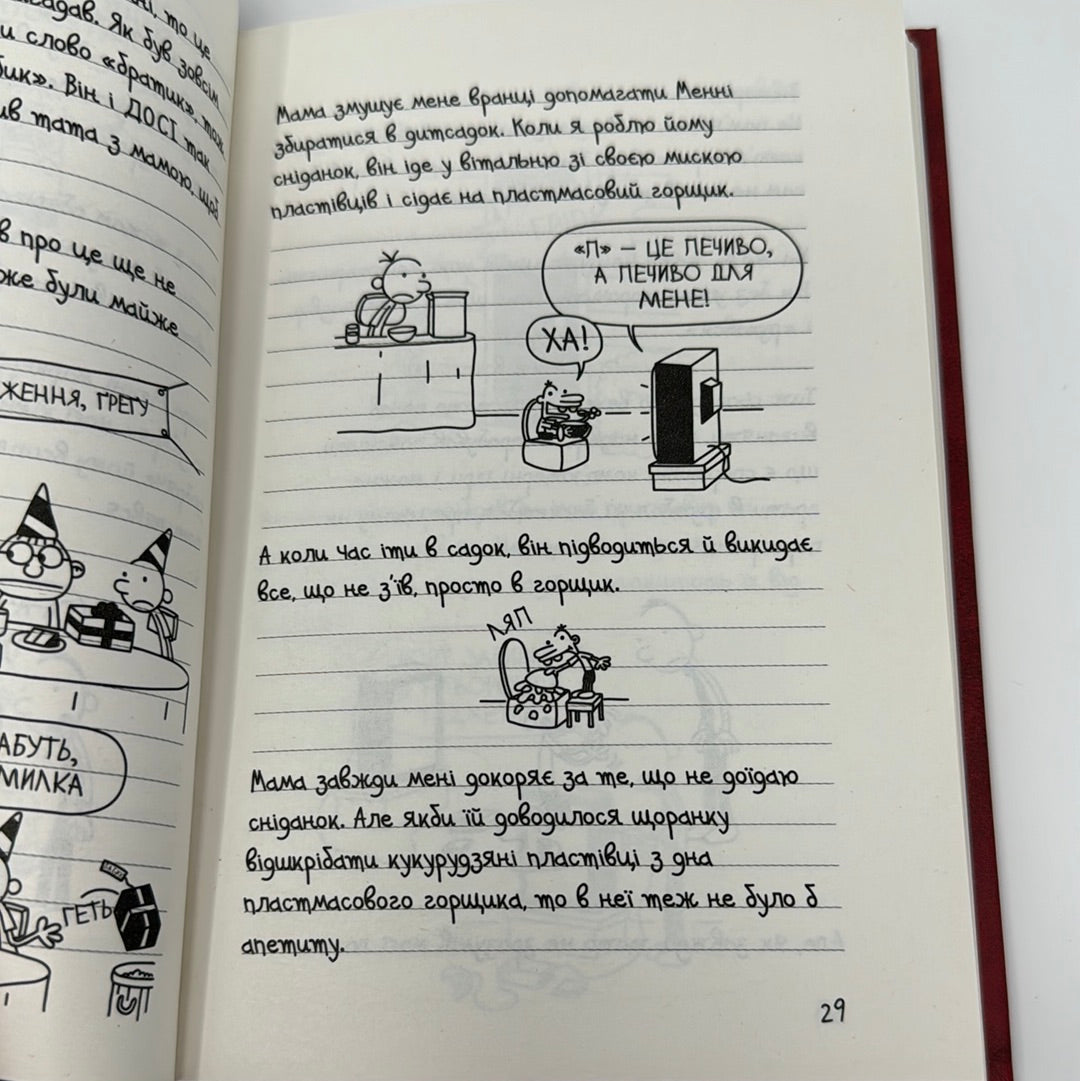 то це
Як був зовсім
слово «братик», тож
Він і ДОСІ так
тата з мамою, щоб
про це ще не
були майже
ГРЕГУ
ГЕТЬ
Мама змушує мене вранці допомагати Менні
збиратися в дитсадок. Коли я роблю йому
сніданок, він іде у вітальню зі своєю мискою
пластівців і сідає на пластмасовий горщик.
«П» – ЦЕ ПЕЧИВО,
А ПЕЧИВО ДЛЯ
МЕНЕ!
ХА!
А коли час іти в садок, він підводиться й викидає
все, що не з'їв, просто в горщик.
ЛЯП
Мама завжди мені докоряє за те, що не доїдаю
сніданок. Але якби їй доводилося щоранку
відшкрібати кукурудзяні пластівці з дна
пластмасового горщика, то в неї теж не було б
апетиту.
29